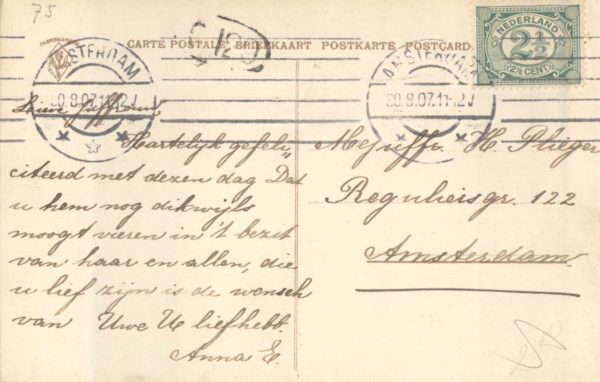 75
S 120
CARTE POSTALE BRIEFKAART POSTKARTE POSTCARD
NEDERLAND
2½
(2½ CENT)
AMSTERDAM
30.8.07.11-12V
AMSTERDAM
30.8.07.11-12V
Lieve Juffrouw
Hartelijk gefeli„
citeerd met dezen dag Dat
u hem nog dikwijls
moogt vieren in 't bezit
van haar en allen, die
u lief zijn is de wensch
van Uwe U liefhebb.
Anna E.
Mejuffr. H. Plieger
Reguliersgr. 122
Amsterdam.